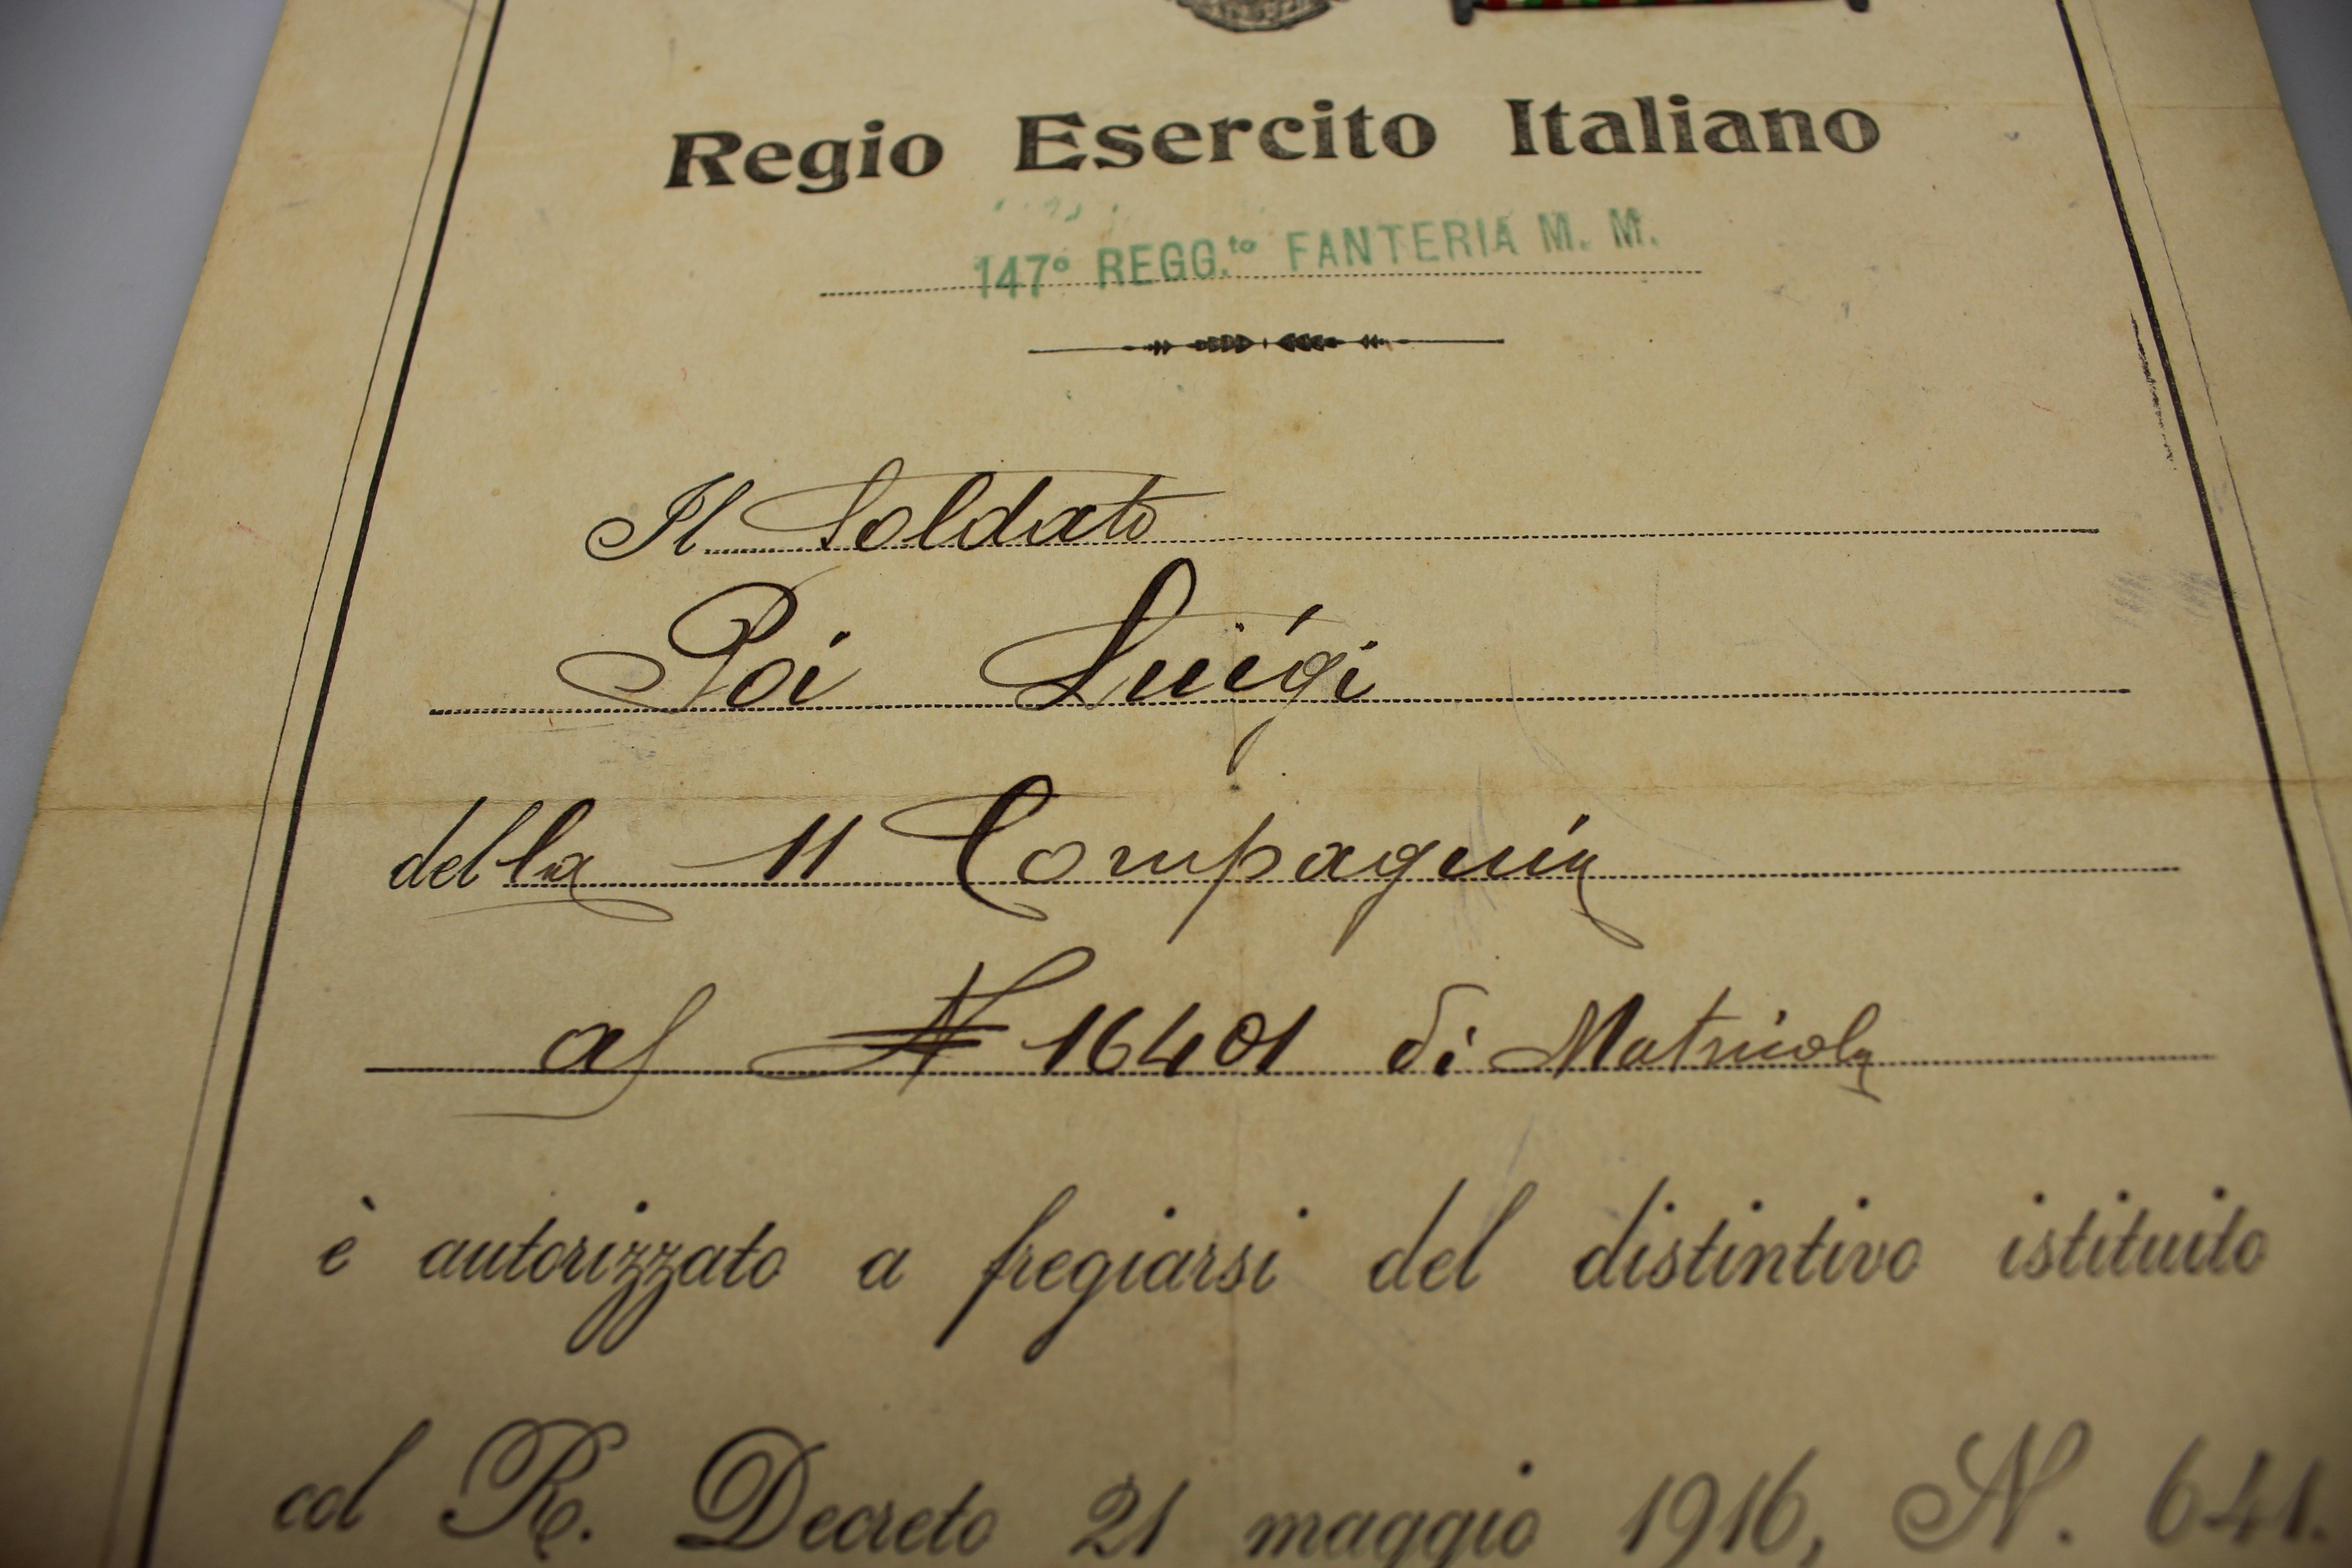 Regio Esercito Italiano
147° REGG.to FANTERIA M. M.
Il Soldato
Poi Luigi
della 11 Compagnia
al N 16401 di Matricola
è autorizzato a fregiarsi del distintivo istituito
col R. Decreto 21 maggio 1916, N. 641.